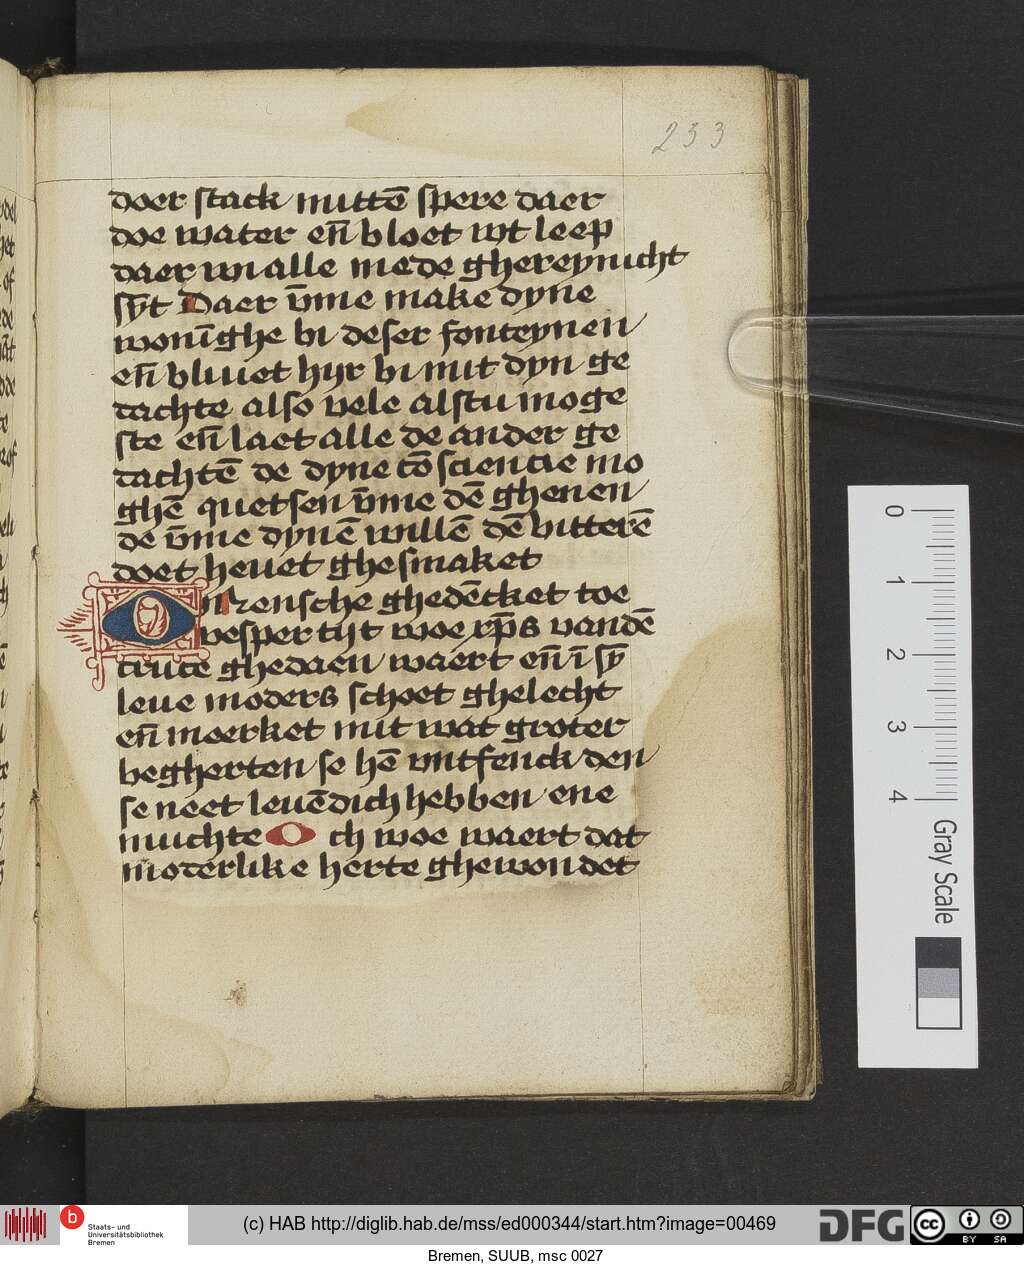 233
doer stack mittē spere daer
doe water eñ bloet wt leep
daer wi alle mede ghereynicht
sÿt Daer v̄me make dyne
wonīghe bi deser fonteynen
eñ bliuet hijr bi mit dyn ge
dachte also vele alstu moge
ste eñ laet alle de ander ge
dachtē de dyne cōsciencie mo
ghē quetsen v̄me dē ghenen
de v̄me dynē willē dē bitterē
doet heuet ghesmaket
O mensche ghedēcket toe
vesper tijt woe xp̄s vandē
cruce ghedaen waert eñ ī sÿ
leue moders schoet ghelecht
eñ moerket mit wat groter
begherten se hē vntfenck den
se neet leuēdich hebben ene
muchte O ch woe waert dat
moderlike herte ghewondet
0
1
2
3
4
Gray Scale
b
Staats- und
Universitätsbibliothek
Bremen
(c) HAB http://diglib.hab.de/mss/ed000344/start.htm?image=00469
DFG
cc
BY SA
Bremen, SUUB, msc 0027